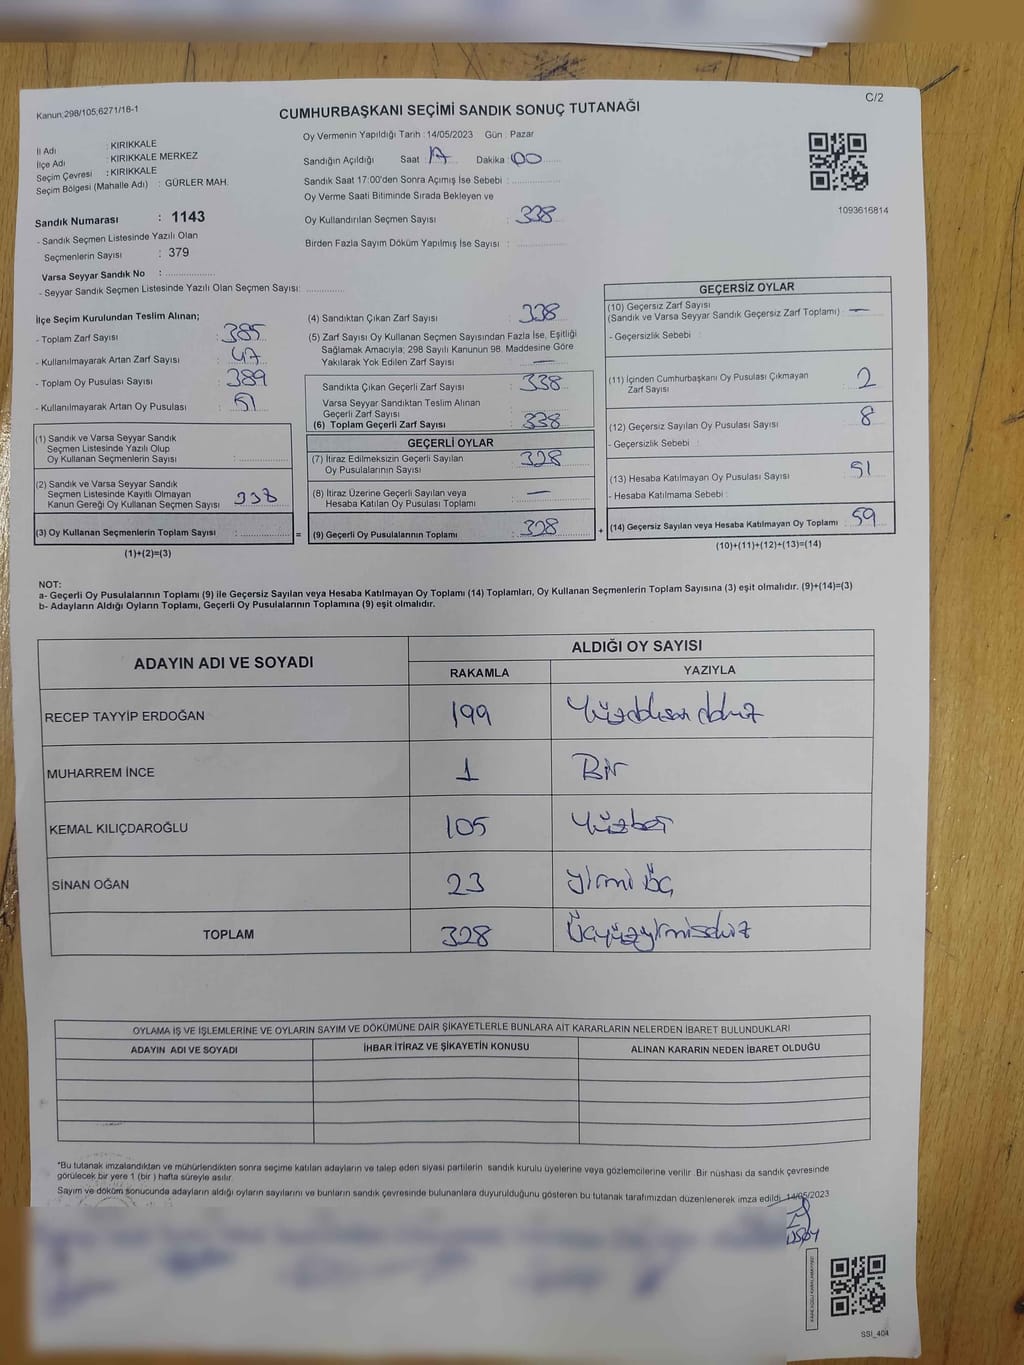 C/2
Kanun;298/105;6271/18-1
CUMHURBAŞKANI SEÇİMİ SANDIK SONUÇ TUTANAĞI
İl Adı : KIRIKKALE
İlçe Adı : KIRIKKALE MERKEZ
Seçim Çevresi : KIRIKKALE
Seçim Bölgesi (Mahalle Adı) : GÜRLER MAH.
Sandık Numarası : 1143
- Sandık Seçmen Listesinde Yazılı Olan
Seçmenlerin Sayısı : 379
Varsa Seyyar Sandık No :
- Seyyar Sandık Seçmen Listesinde Yazılı Olan Seçmen Sayısı:
Oy Vermenin Yapıldığı Tarih : 14/05/2023 Gün : Pazar
Sandığın Açıldığı Saat : 17 Dakika : 00
Sandık Saat 17:00'den Sonra Açımış İse Sebebi :
Oy Verme Saati Bitiminde Sırada Bekleyen ve
Oy Kullandırılan Seçmen Sayısı : 338
Birden Fazla Sayım Döküm Yapılmış İse Sayısı :
1093616814
İlçe Seçim Kurulundan Teslim Alınan;
- Toplam Zarf Sayısı : 385
- Kullanılmayarak Artan Zarf Sayısı : 47
- Toplam Oy Pusulası Sayısı : 389
- Kullanılmayarak Artan Oy Pusulası : 51
(1) Sandık ve Varsa Seyyar Sandık
Seçmen Listesinde Yazılı Olup
Oy Kullanan Seçmenlerin Sayısı :
(2) Sandık ve Varsa Seyyar Sandık
Seçmen Listesinde Kayıtlı Olmayan
Kanun Gereği Oy Kullanan Seçmen Sayısı : 338
(3) Oy Kullanan Seçmenlerin Toplam Sayısı :
(1)+(2)=(3)
(4) Sandıktan Çıkan Zarf Sayısı : 338
(5) Zarf Sayısı Oy Kullanan Seçmen Sayısından Fazla İse, Eşitliği
Sağlamak Amacıyla; 298 Sayılı Kanunun 98. Maddesine Göre
Yakılarak Yok Edilen Zarf Sayısı : —
Sandıkta Çıkan Geçerli Zarf Sayısı : 338
Varsa Seyyar Sandıktan Teslim Alınan
Geçerli Zarf Sayısı :
(6) Toplam Geçerli Zarf Sayısı : 338
GEÇERLİ OYLAR
(7) İtiraz Edilmeksizin Geçerli Sayılan
Oy Pusulalarının Sayısı : 328
(8) İtiraz Üzerine Geçerli Sayılan veya
Hesaba Katılan Oy Pusulası Toplamı : —
= (9) Geçerli Oy Pusulalarının Toplamı : 328
GEÇERSİZ OYLAR
(10) Geçersiz Zarf Sayısı
(Sandık ve Varsa Seyyar Sandık Geçersiz Zarf Toplamı) : —
- Geçersizlik Sebebi :
(11) İçinden Cumhurbaşkanı Oy Pusulası Çıkmayan
Zarf Sayısı : 2
(12) Geçersiz Sayılan Oy Pusulası Sayısı : 8
- Geçersizlik Sebebi :
(13) Hesaba Katılmayan Oy Pusulası Sayısı : 51
- Hesaba Katılmama Sebebi :
+ (14) Geçersiz Sayılan veya Hesaba Katılmayan Oy Toplamı : 59
(10)+(11)+(12)+(13)=(14)
NOT:
a- Geçerli Oy Pusulalarının Toplamı (9) ile Geçersiz Sayılan veya Hesaba Katılmayan Oy Toplamı (14) Toplamları, Oy Kullanan Seçmenlerin Toplam Sayısına (3) eşit olmalıdır. (9)+(14)=(3)
b- Adayların Aldığı Oyların Toplamı, Geçerli Oy Pusulalarının Toplamına (9) eşit olmalıdır.
ADAYIN ADI VE SOYADI ALDIĞI OY SAYISI
RAKAMLA YAZIYLA
RECEP TAYYİP ERDOĞAN 199 Yüzdoksan dokuz
MUHARREM İNCE 1 Bir
KEMAL KILIÇDAROĞLU 105 Yüzbeş
SİNAN OĞAN 23 Yirmi üç
TOPLAM 328 Üçyüzyirmisekiz
OYLAMA İŞ VE İŞLEMLERİNE VE OYLARIN SAYIM VE DÖKÜMÜNE DAİR ŞİKAYETLERLE BUNLARA AİT KARARLARIN NELERDEN İBARET BULUNDUKLARI
ADAYIN ADI VE SOYADI İHBAR İTİRAZ VE ŞİKAYETİN KONUSU ALINAN KARARIN NEDEN İBARET OLDUĞU
*Bu tutanak imzalandıktan ve mühürlendikten sonra seçime katılan adayların ve talep eden siyasi partilerin sandık kurulu üyelerine veya gözlemcilerine verilir .Bir nüshası da sandık çevresinde
görülecek bir yere 1 (bir ) hafta süreyle asılır.
Sayım ve döküm sonucunda adayların aldığı oyların sayılarını ve bunların sandık çevresinde bulunanlara duyurulduğunu gösteren bu tutanak tarafımızdan düzenlenerek imza edildi. 14/05/2023
SSI_404